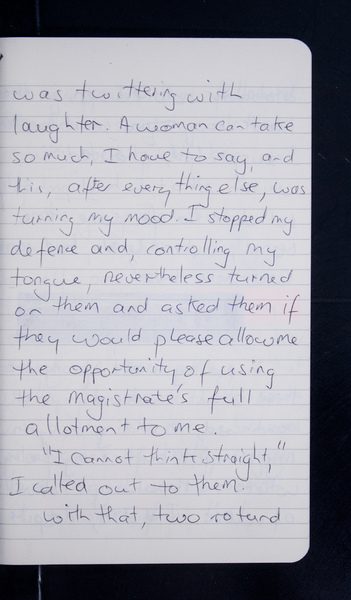 was twittering with
laughter. A woman can take
so much, I have to say, and
this, after everything else, was
turning my mood. I stopped my
defence and, controlling my
tongue, nevertheless turned
on them and asked them if
they would please allow me
the opportunity of using
the magistrate's full
allotment to me.
"I cannot think straight,"
I called out to them.
With that, two rotund